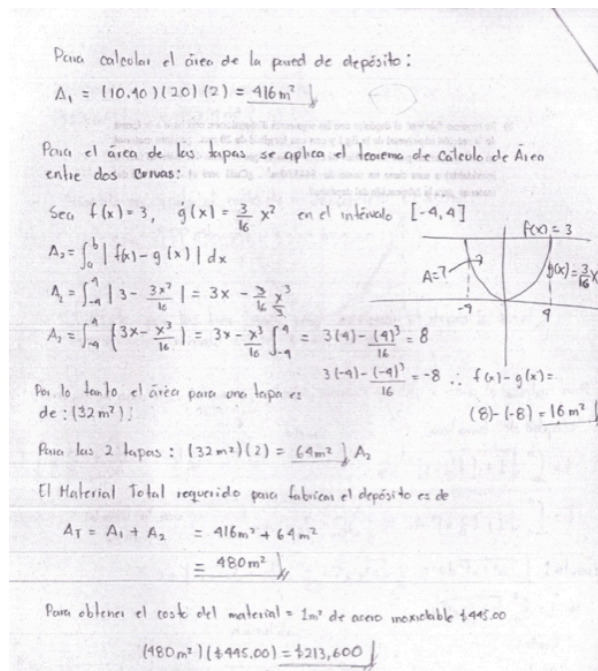 Para calcular el área de la pared de depósito:
A₁ = (10.40)(20)(2) = 416m²
Para el área de las tapas se aplica el teorema de Cálculo de Área
entre dos Curvas:
Sea f(x) = 3, g(x) = 3/16 x² en el intérvalo [-4,4]
f(x) = 3
A₂ = ∫ₐᵇ |f(x) - g(x)| dx
A=?
g(x) = 3/16 x
A₂ = ∫₋₄⁴ |3 - 3x²/16| = 3x - 3/16 x³/3
-4 4
A₂ = ∫₋₄⁴ (3x - x³/16) = 3x - x³/16 ∫₋₄⁴ = 3(4) - (4)³/16 = 8
3(-4) - (-4)³/16 = -8 ∴ f(x) - g(x) =
(8) - (-8) = 16m²
Por lo tanto el área para una tapa es
de: (32m²);
Para las 2 tapas: (32m²)(2) = 64m² A₂
El Material Total requerido para fabricar el depósito es de
A_T = A₁ + A₂ = 416m² + 64m²
= 480m²
Para obtener el costo del material = 1m² de acero inoxidable $445.00
(480m²)($445.00) = $213,600